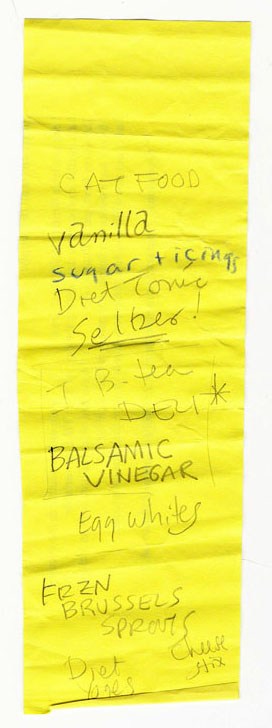 CAT FOOD
vanilla
sugar + icings
Diet Tonic
Seltzer!
I B. tea
DELI *
BALSAMIC
VINEGAR
Egg whites
FRZN
BRUSSELS
SPROUTS
Cheese
stix
Diet